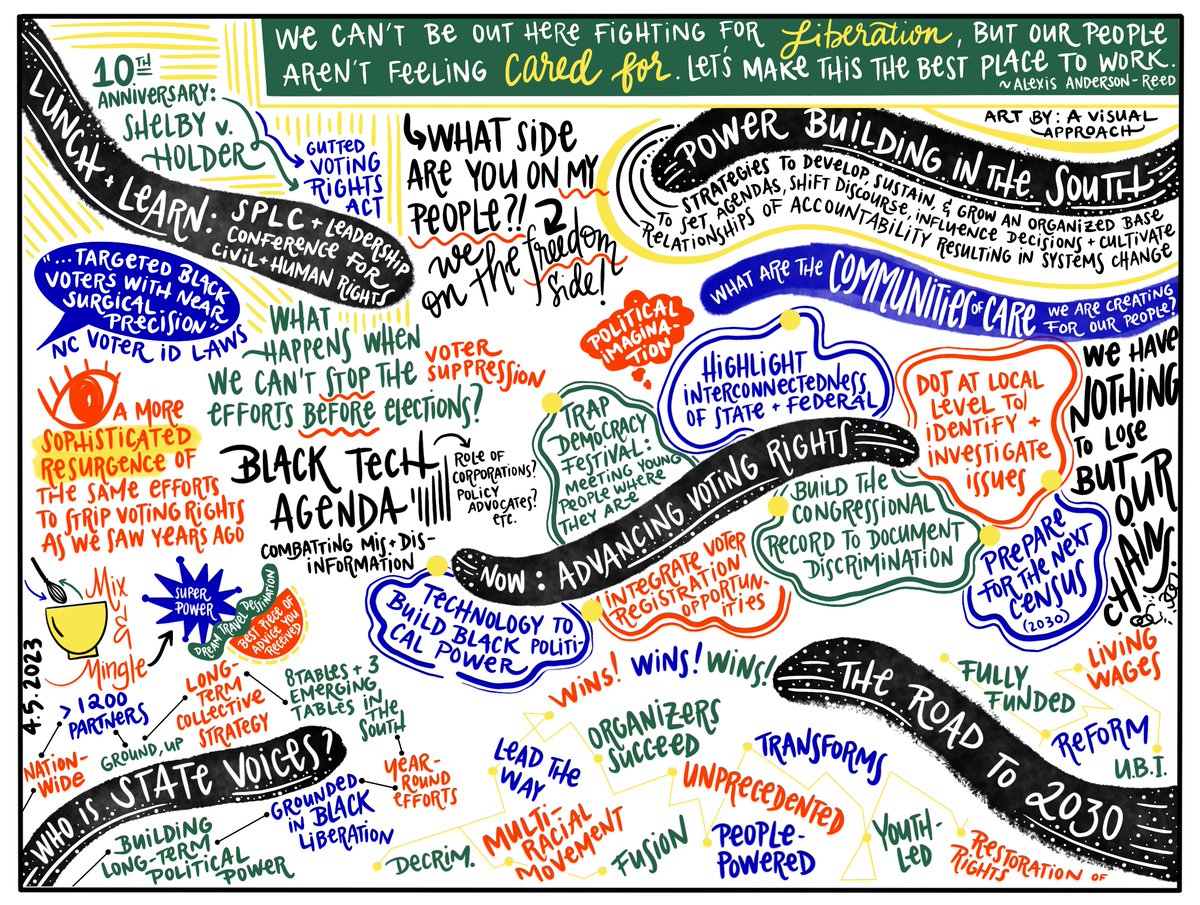 WE CAN'T BE OUT HERE FIGHTING FOR Liberation, BUT OUR PEOPLE
AREN'T FEELING Cared for. LET'S MAKE THIS THE BEST PLACE TO WORK.
~ALEXIS ANDERSON-REED
LUNCH + LEARN: SPLC + LEADERSHIP
CONFERENCE FOR
CIVIL + HUMAN RIGHTS
10TH
ANNIVERSARY:
SHELBY V.
HOLDER
GUTTED
VOTING
RIGHTS
ACT
WHAT SIDE
ARE YOU ON MY
PEOPLE?!
we on the freedom
side!
ART BY: A VISUAL
APPROACH
POWER BUILDING IN THE SOUTH
STRATEGIES TO DEVELOP, SUSTAIN, & GROW AN ORGANIZED BASE
TO SET AGENDAS, SHIFT DISCOURSE, INFLUENCE DECISIONS + CULTIVATE
RELATIONSHIPS OF ACCOUNTABILITY RESULTING IN SYSTEMS CHANGE
WHAT ARE THE COMMUNITIES OF CARE WE ARE CREATING
FOR OUR PEOPLE?
"...TARGETED BLACK
VOTERS WITH NEAR
SURGICAL
PRECISION"
NC VOTER ID LAWS
WHAT
HAPPENS WHEN
WE CAN'T STOP THE VOTER
SUPPRESSION
EFFORTS BEFORE ELECTIONS?
A MORE
SOPHISTICATED
RESURGENCE OF
THE SAME EFFORTS
TO STRIP VOTING RIGHTS
AS WE SAW YEARS AGO
BLACK TECH
AGENDA
ROLE OF
CORPORATIONS?
POLICY
ADVOCATES?
ETC.
COMBATTING MIS + DIS-
INFORMATION
POLITICAL
IMAGINA-
TION
NOW: ADVANCING VOTING RIGHTS
TRAP
DEMOCRACY
FESTIVAL:
MEETING YOUNG
PEOPLE WHERE
THEY ARE
HIGHLIGHT
INTERCONNECTEDNESS
OF STATE + FEDERAL
DOJ AT LOCAL
LEVEL TO
IDENTIFY +
INVESTIGATE
ISSUES
TECHNOLOGY TO
BUILD BLACK POLITI-
CAL POWER
INTEGRATE VOTER
REGISTRATION
OPPORTUN-
ITIES
BUILD THE
CONGRESSIONAL
RECORD TO DOCUMENT
DISCRIMINATION
PREPARE
FOR THE NEXT
CENSUS
(2030)
WE HAVE
NOTHING
TO LOSE
BUT
OUR
CHAINS.
Mix
&
Mingle
SUPER
POWER
DREAM TRAVEL DESTINATION
BEST PIECE OF
ADVICE YOU
RECEIVED
4.5.2023
WHO IS STATE VOICES?
NATION-
WIDE
> 1200
PARTNERS
GROUND, UP
LONG-
TERM
COLLECTIVE
STRATEGY
8 TABLES + 3
EMERGING
TABLES IN
THE
SOUTH
YEAR-
ROUND
EFFORTS
GROUNDED
IN BLACK
LIBERATION
BUILDING
LONG-TERM
POLITICAL
POWER
THE ROAD TO 2030
WINS! WINS! WINS!
LEAD THE
WAY
ORGANIZERS
SUCCEED
TRANSFORMS
UNPRECEDENTED
DECRIM.
MULTI-
RACIAL
MOVEMENT
FUSION
PEOPLE-
POWERED
YOUTH-
LED
RESTORATION OF
RIGHTS
FULLY
FUNDED
LIVING
WAGES
REFORM
U.B.I.